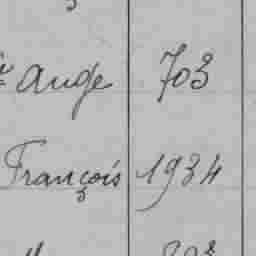 Ange 703
François 1934